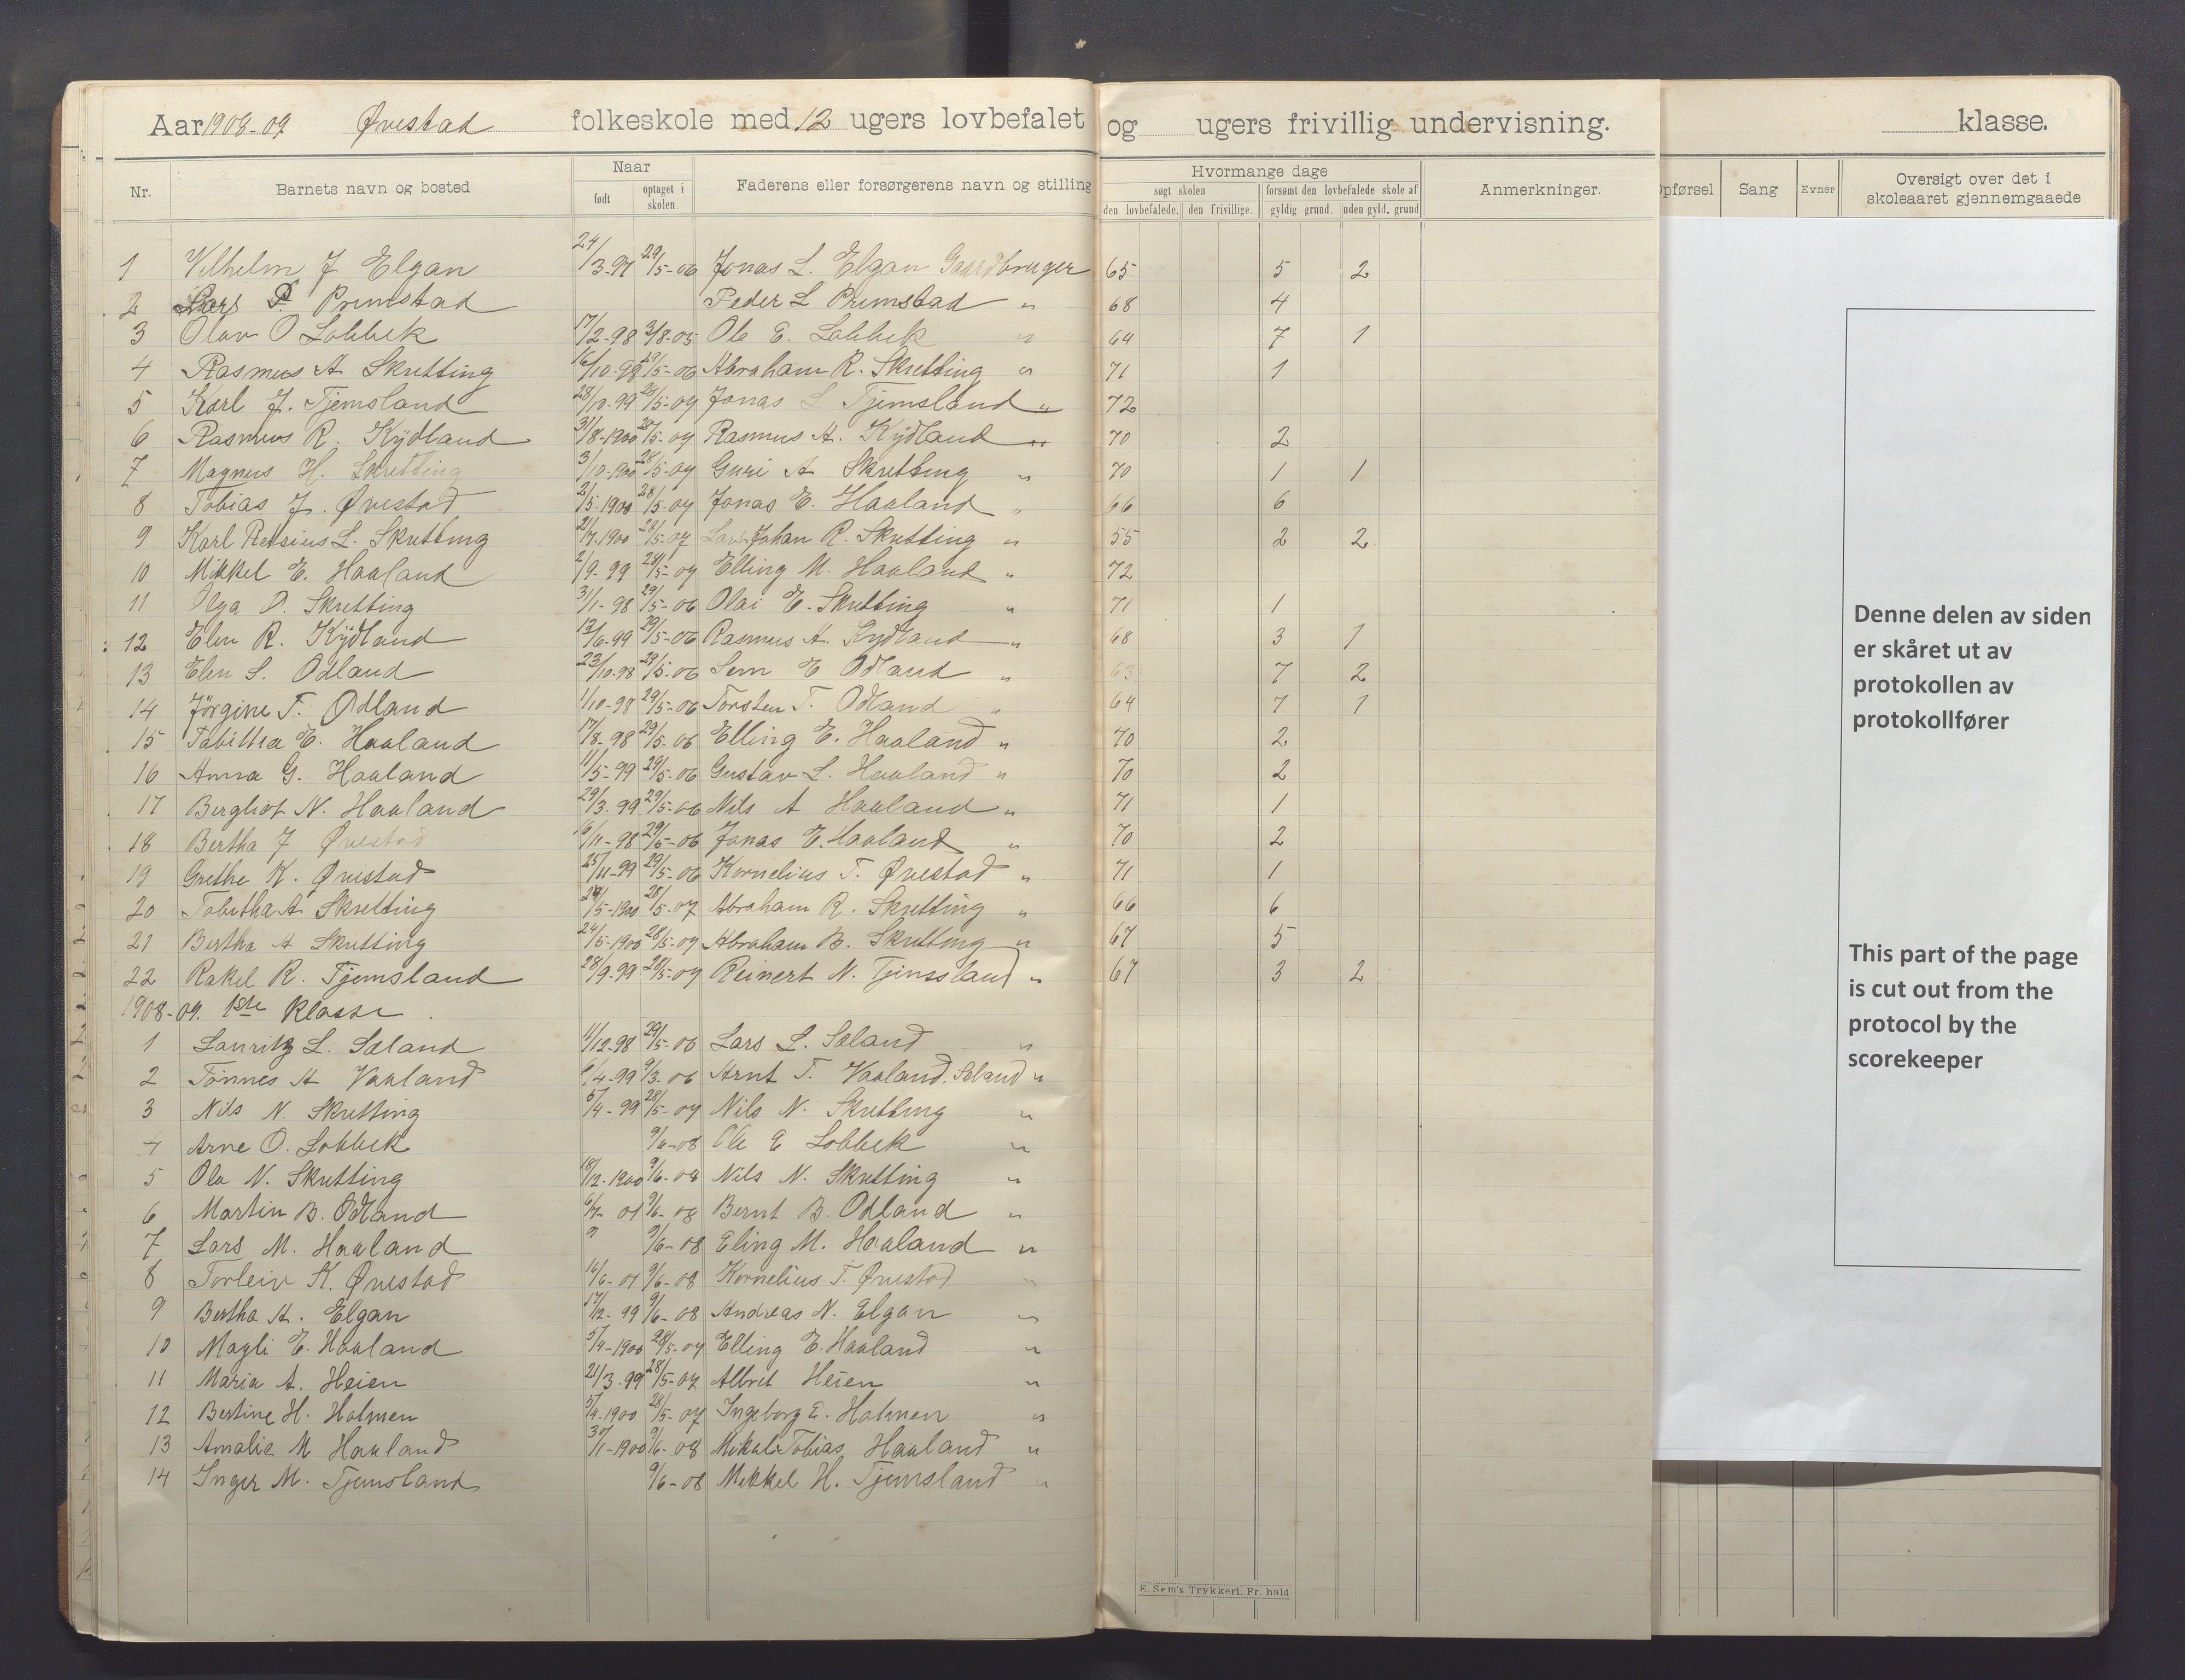 Aar 1908-09 Øvestad folkeskole med 12 ugers lovbefalet og ugers frivillig undervisning. klasse.
Nr. Barnets navn og bosted Naar født optaget i skolen. Faderens eller forsørgerens navn og stilling Hvormange dage søgt skolen den lovbefalede. den frivillige. forsømt den lovbefalede skole af gyldig grund. uden gyld. grund Anmerkninger. Opførsel Sang Evner Oversigt over det i skoleaaret gjennemgaaede
1 Vilhelm J Elgan 24/3-97 29/5-06 Jonas L. Elgan Gaardbruger 65 5 2
2 Lars P. Primstad Peder L Primstad " 68 4
3 Olav O Lobbek 17/2-98 3/8-05 Ole E. Lobbek " 64 7 1
4 Rasmus A Skretting 16/10-98 29/5-06 Abraham R. Skretting " 71 1
5 Karl J. Tjemsland 28/10-99 28/5-07 Jonas L Tjemsland " 72
6 Rasmus R. Kÿdland 31/8-1900 28/5-07 Rasmus A. Kÿdland " 70 2
7 Magnus H. Skretting 3/10-1900 28/5-07 Guri A Skretting " 70 1 1
8 Tobias J. Øvestad 2/5-1900 28/5-07 Jonas E. Haaland " 66 6
9 Karl Retsius L. Skretting 21/7-1900 28/5-07 Lars Johan R. Skretting " 55 2 2
10 Mikkel E. Haaland 2/9-99 28/5-07 Elling M. Haaland " 72
11 Olga O. Skretting 31/1-98 29/5-06 Olai E. Skretting " 71 1
12 Elen R. Kÿdland 13/6-99 29/5-06 Rasmus A. Kydland " 68 3 1
13 Elen S. Odland 23/10-98 29/5-06 Sem E Odland " 63 7 2
14 Jörgine T. Odland 1/10-98 29/5-06 Torsten T. Odland " 64 7 1
15 Tabitha E. Haaland 17/8-98 29/5-06 Elling E. Haaland " 70 2
16 Anna G. Haaland 11/5-99 29/5-06 Gustav L. Haaland " 70 2
17 Bergliot N. Haaland 29/3-99 29/5-06 Nils A Haaland " 71 1
18 Bertha J Øvestad 16/11-98 29/5-06 Jonas E. Haaland " 70 2
19 Grethe K. Øvestad 25/11-99 29/5-06 Kornelius T. Øvestad " 71 1
20 Tabitha A Skretting 24/5-1900 28/5-07 Abraham R. Skretting " 66 6
21 Bertha A Skretting 24/5-1900 28/5-07 Abraham R. Skretting " 67 5
22 Rakel R. Tjemsland 28/9-99 28/5-07 Reinert N. Tjemsland " 67 3 2
1908-09. 1ste Klasse.
1 Lauritz L. Sæland 11/12-98 29/5-06 Lars L. Sæland "
2 Tönnes A Vaaland 6/4-99 9/3-06 Arnt T. Vaaland. Sæland "
3 Nils N. Skretting 5/4-99 28/5-07 Nils N. Skretting "
4 Arne O. Lobbek 9/6-08 Ole E Lobbek "
5 Ola N. Skretting 18/12-1900 9/6-08 Nils N. Skretting "
6 Martin B. Odland 6/7-01 9/6-08 Bernt B. Odland "
7 Lars M. Haaland 9 9/6-08 Eling M. Haaland "
8 Torleiv K. Øvestad 16/6-01 9/6-08 Kornelius T. Øvestad "
9 Bertha A. Elgan 17/12-99 9/6-08 Andreas N. Elgan "
10 Magli E. Haaland 5/4-1900 28/5-07 Elling E. Haaland "
11 Maria A. Heien 21/3-99 28/5-07 Albret Heien "
12 Bertine H. Holmen 5/4-1900 28/5-07 Ingeborg E. Holmen "
13 Amalie M Haaland 30/11-1900 9/6-08 Mikal Tobias Haaland "
14 Inger M. Tjemsland 9/6-08 Mikkel H. Tjemsland "
E. Sem's Trykkeri, Fr. hald
Denne delen av siden
er skåret ut av
protokollen av
protokollfører
This part of the page
is cut out from the
protocol by the
scorekeeper